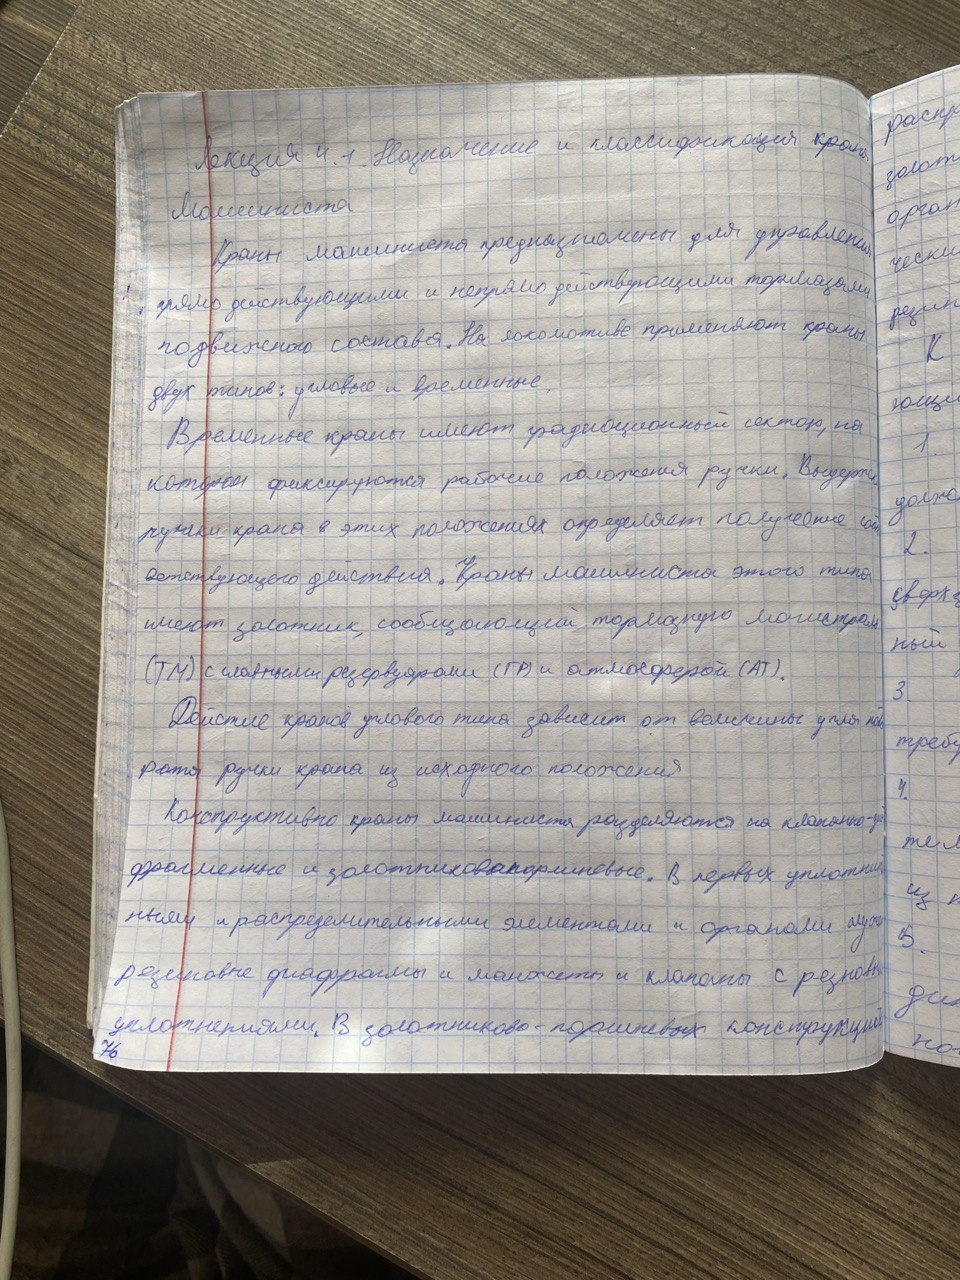 Лекция 4.1. Назначение и классификация крана
Машиниста
Краны машиниста предназначены для управления
прямодействующими и непрямодействующими тормазами
подвижного состава. На локомотиве применяют краны
двух типов: угловые и временные.
Временные краны имеют градационный сектор, на
котором фиксируются рабочие положения ручки. Выдержка
ручки крана в этих положениях определяет получение соот
ветствующего действия. Краны машиниста этого типа
имеют золотник, сообщающий тормазную магистраль
(ТМ) с главными резервуарами (ГР) и атмосферой (АТ).
Дейстие кранов углового типа зависит от величины углы пово
рота ручки крана из исходного положения
Конструктивно краны машиниста разделяются на клапанно-диа
фрагменные и золотниковопоршневые. В первых уплотнитель
ными и распределительными элементами и органами служат
резиновые диафрагмы и манжеты и клапаны с резиновыми
уплотнениями. В золотниково-поршневых конструкций
76
распр
золот
орган
чески
резин
К
ющи
1.
должн
2.
сверхз
ный
3.
требу
4.
тел
из
5.